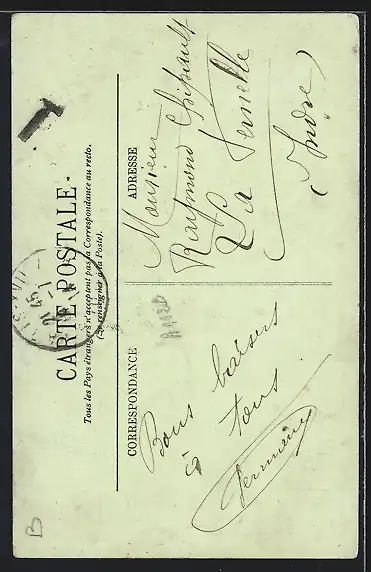 CARTE POSTALE
Tous les Pays étrangers n'acceptent pas la Correspondance au recto.
(Se renseigner à la Poste).
CORRESPONDANCE
Bons baisers
à tous
Germaine
ADRESSE
Monsieur
Raymond
La Pernelle
(Indre)
B